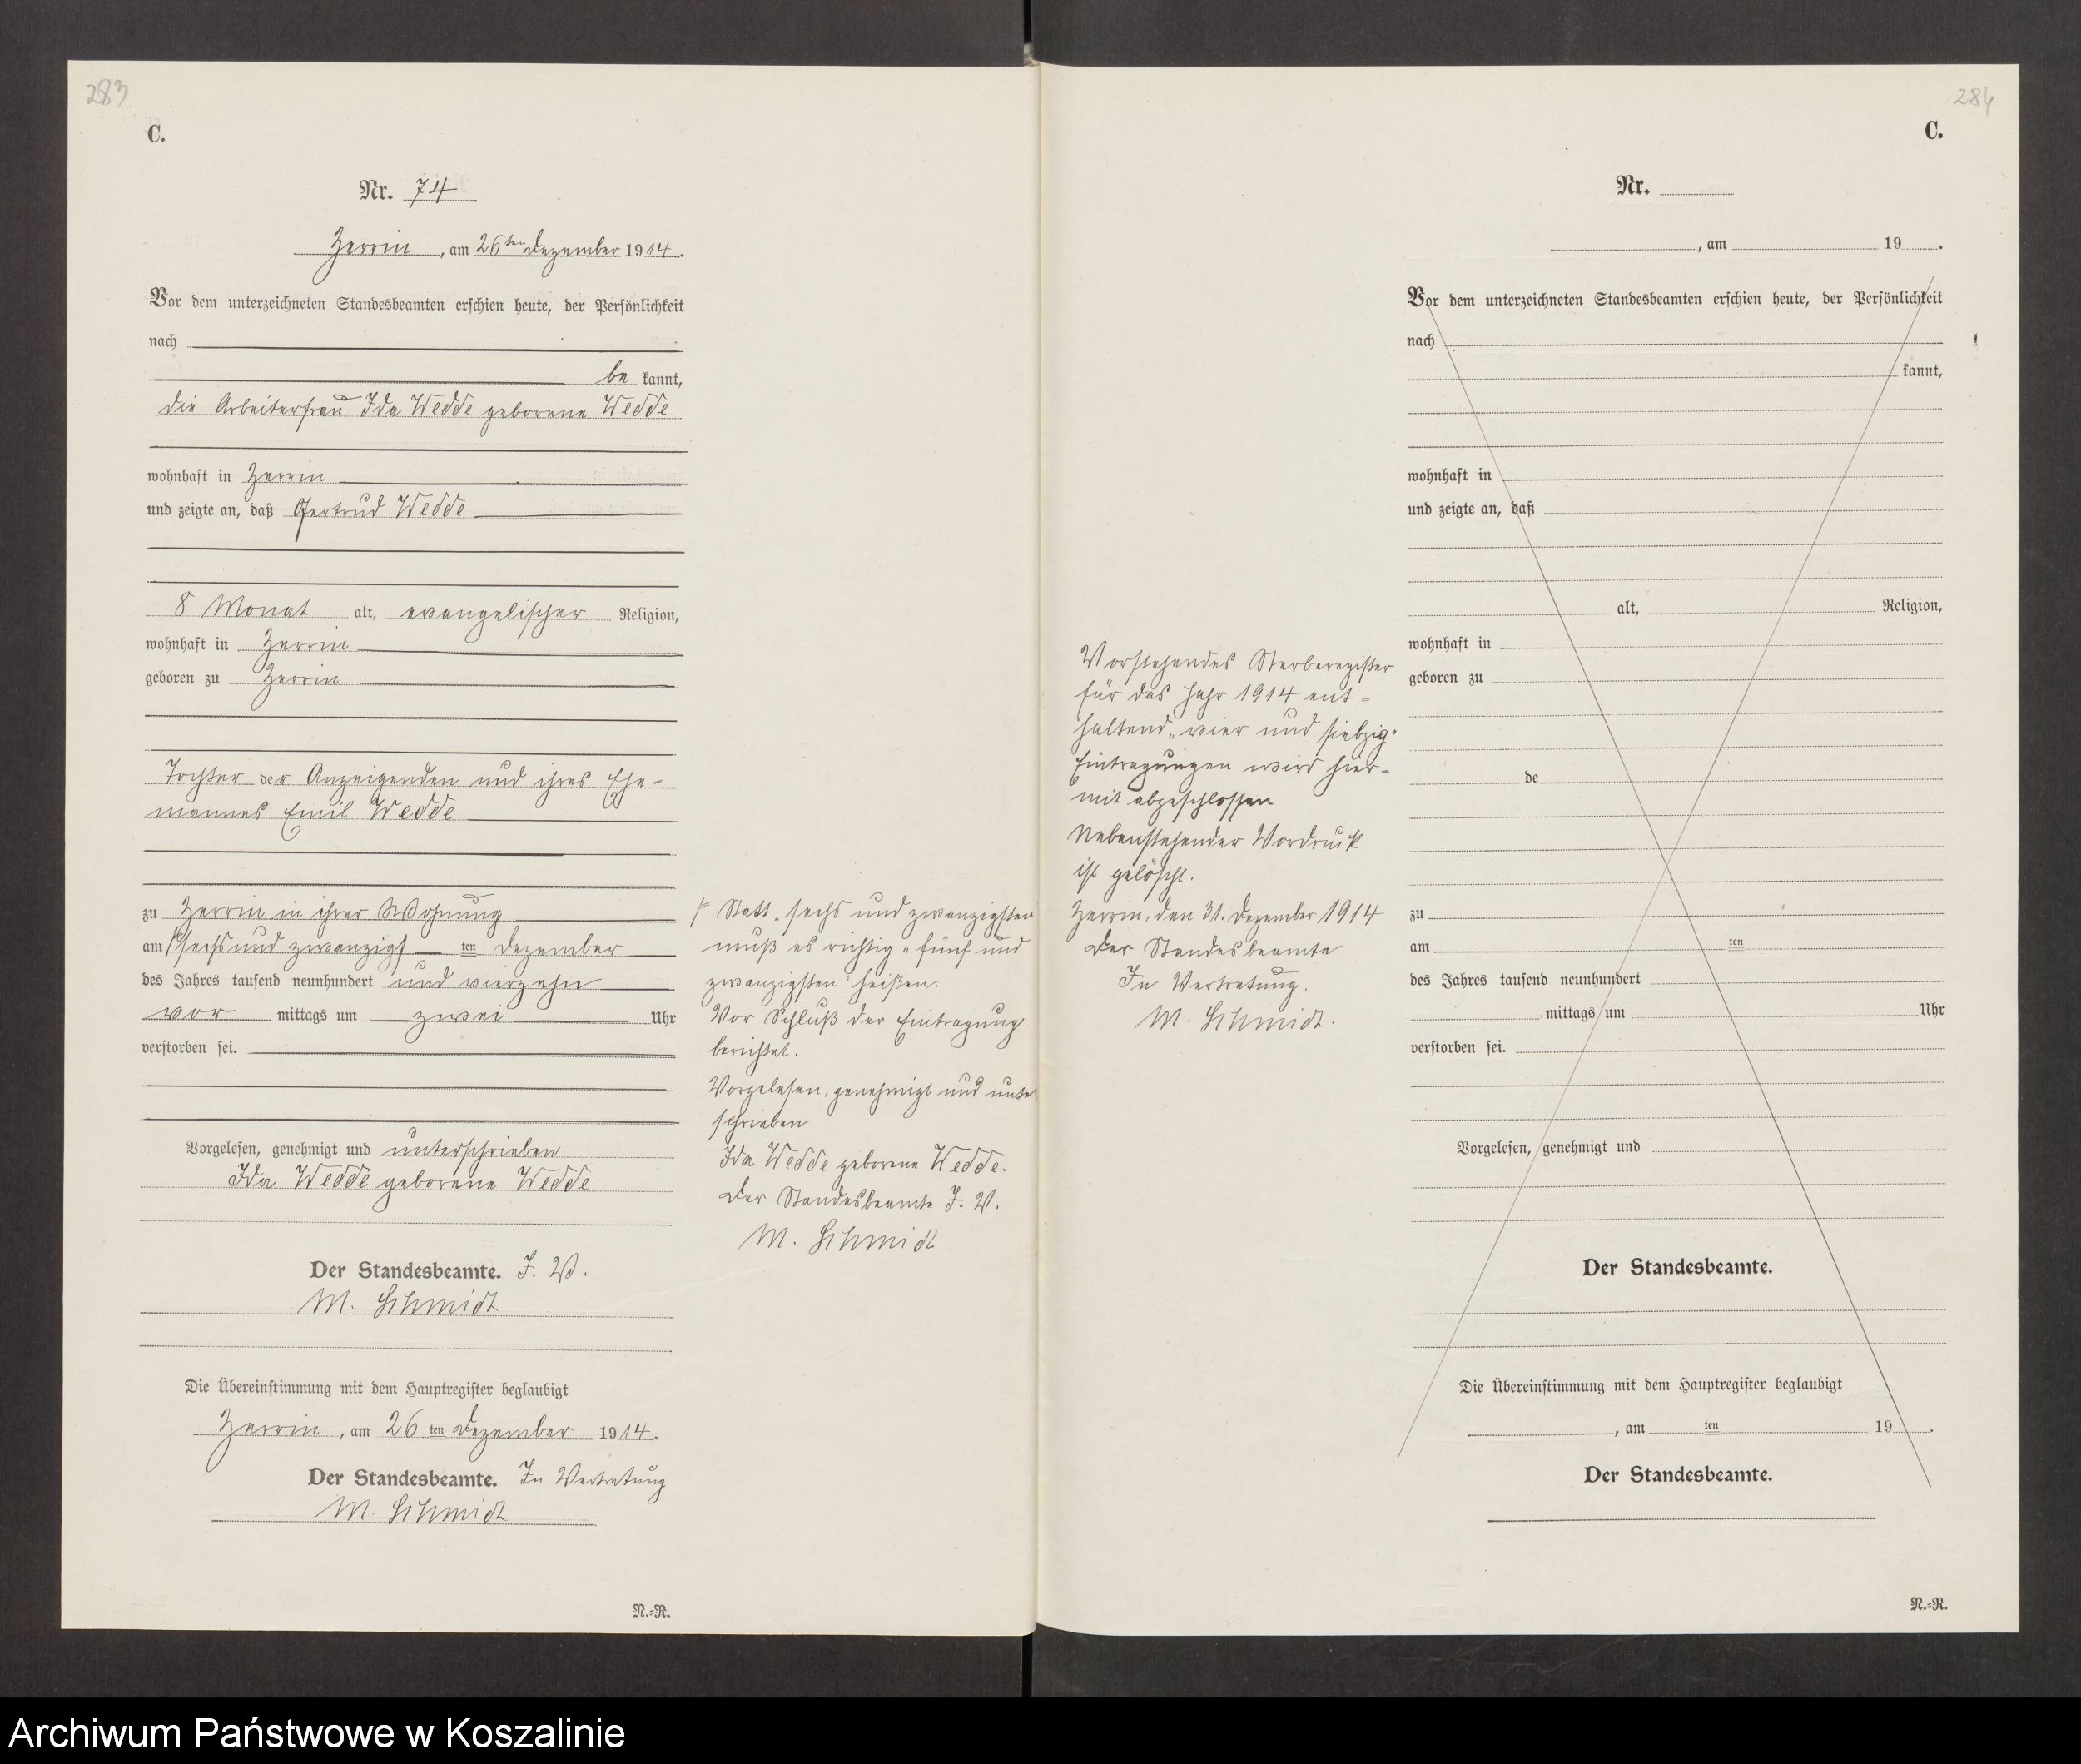 283
C.
Nr. 74
Zerrin, am 26ten Dezember 1914.
Vor dem unterzeichneten Standesbeamten erschien heute, der Persönlichkeit
nach
be kannt,
die Arbeiterfrau Ida Wedde geborene Wedde
wohnhaft in Zerrin
und zeigte an, daß Gertrud Wedde
8 Monat alt, evangelischer Religion,
wohnhaft in Zerrin
geboren zu Zerrin
Tochter der Anzeigenden und ihres Ehe-
mannes Emil Wedde
zu Zerrin in ihrer Wohnung
am sechs und zwanzigs ten Dezember
des Jahres tausend neunhundert und vierzehn
vor mittags um zwei Uhr
verstorben sei.
Vorgelesen, genehmigt und unterschrieben
Ida Wedde geborene Wedde
Der Standesbeamte. I. V.
M. Schmidt
Die Übereinstimmung mit dem Hauptregister beglaubigt
Zerrin, am 26 ten Dezember 1914.
Der Standesbeamte. In Vertretung
M. Schmidt
N.-R.
Statt „sechs und zwanzigsten
muß es richtig „fünf und
zwanzigsten" heißen.
Vor Schluß der Eintragung
berichtet.
Vorgelesen, genehmigt und unter
schrieben
Ida Wedde geborene Wedde.
Der Standesbeamte I. V.
M. Schmidt
284
C.
Vorstehendes Sterberegister
für das Jahr 1914 ent-
haltend „vier und siebzig"
Eintragungen wird hier-
mit abgeschlossen
Nebenstehender Vordruck
ist gelöscht.
Zerrin, den 31. Dezember 1914
Der Standesbeamte
In Vertretung.
M. Schmidt.
Nr.
, am 19 .
Vor dem unterzeichneten Standesbeamten erschien heute, der Persönlichkeit
nach
kannt,
wohnhaft in
und zeigte an, daß
alt, Religion,
wohnhaft in
geboren zu
de
zu
am ten
des Jahres tausend neunhundert
mittags um Uhr
verstorben sei.
Vorgelesen, genehmigt und
Der Standesbeamte.
Die Übereinstimmung mit dem Hauptregister beglaubigt
, am ten 19 .
Der Standesbeamte.
N.-R.
Archiwum Państwowe w Koszalinie